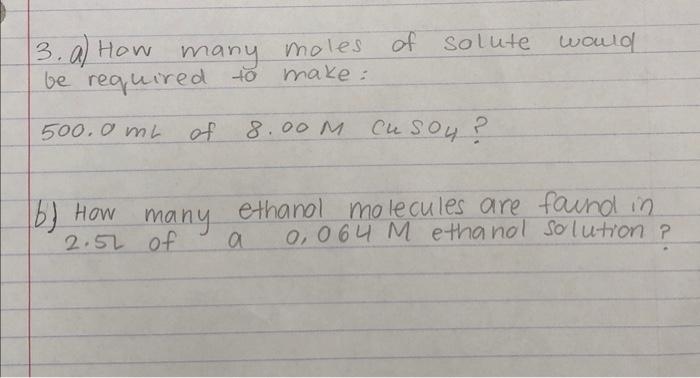 3. a) How many moles of solute would
be required to make:
500.0 mL of 8.00 M CuSO4?
b) How many ethanol molecules are found in
2.5L of a 0.064 M ethanol solution?